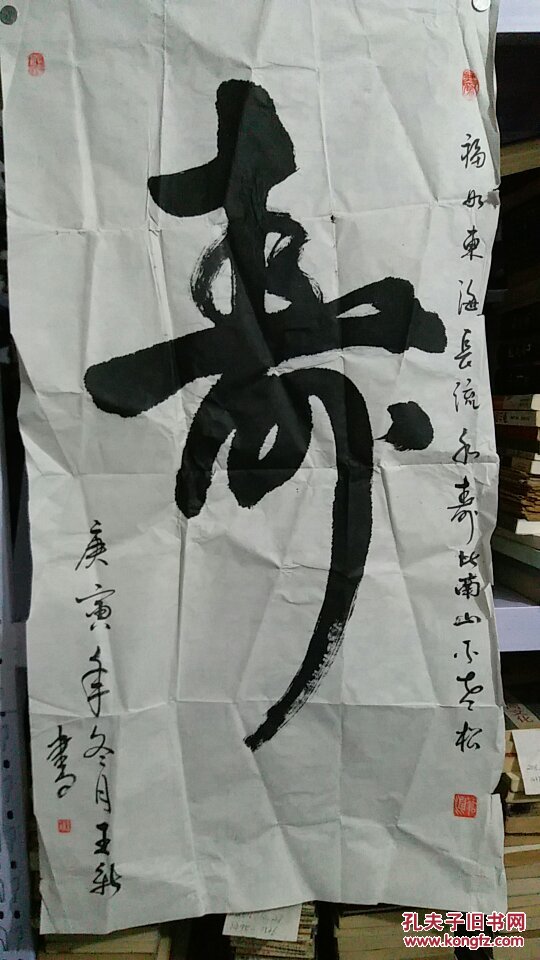 福如東海長流水壽比南山不老松
壽
庚寅年冬月王新
書
孔夫子旧书网
www.kongfz.com